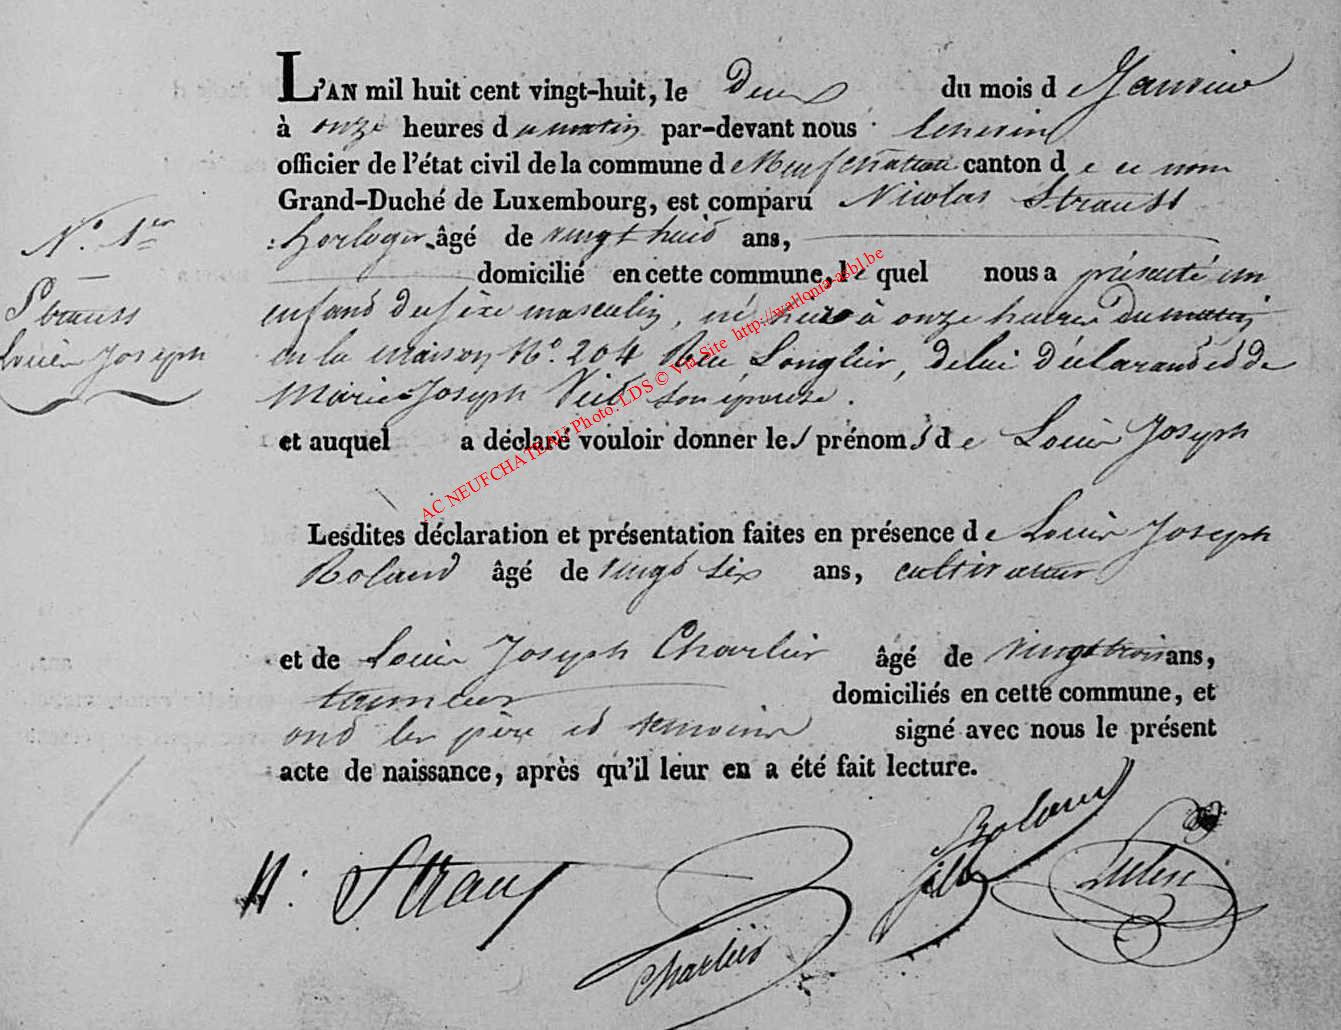 L'AN mil huit cent vingt-huit, le Deux du mois de Janvier
à onze heures du matin par-devant nous échevin
officier de l'état civil de la commune de Neufchateau canton de ce nom
Grand-Duché de Luxembourg, est comparu Nicolas Strauss
N.° 1er
horloger âgé de vingt huit ans,
domicilié en cette commune, le quel nous a présenté un
Strauss
enfant du sèxe masculin, né hier à onze heures du matin
Louis Joseph
en la maison N.° 204 Rue Longlier, de lui déclarant et de
Marie Joseph son épouse.
et auquel a déclaré vouloir donner les prénoms de Louis Joseph
Lesdites déclaration et présentation faites en présence de Louis Joseph
Roland âgé de vingt six ans, cultivateur
et de Louis Joseph Charlier âgé de vingt trois ans,
tanneur domiciliés en cette commune, et
ont les père et témoins signé avec nous le présent
acte de naissance, après qu'il leur en a été fait lecture.
N. Straus
Roland
Charlier
AC NEUFCHATEAU Photo: LDS © Via Site http://wallonia-asbl.be